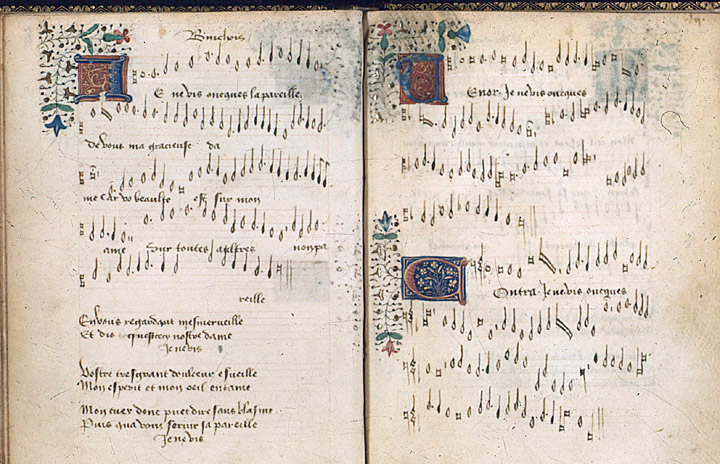 Binchois
E ne vis oncques la pareille
de vous ma gracieuse da
me Car vo beaulte est sur mon
ame Sur toutes aultres nonpa
reille
En vous regardant mesmerveille
Et dis quest cecy nostre dame
Je ne vis
Vostre tresgrant doulceur esueille
Mon esperit et mon oeil entame
Mon cuer donc puet dire sans blasme
Puis qua vous seruir sapareille
Je ne vis
Enor. Je ne vis oncques
Contra. Je ne vis oncques